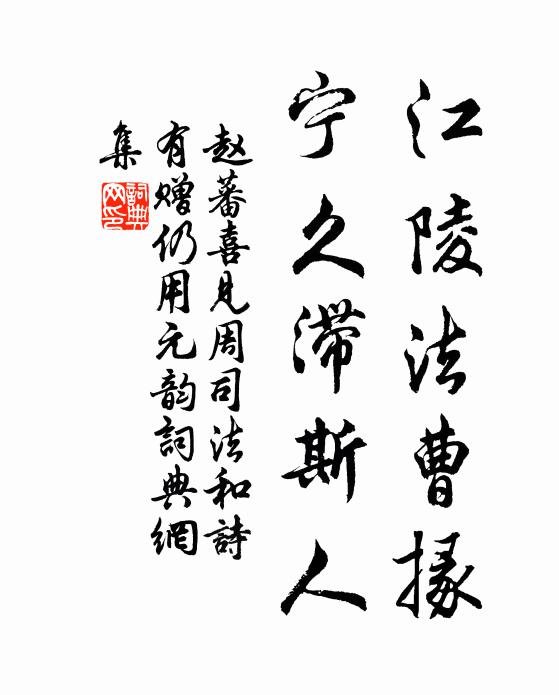 江陵法曹掾
宁久滞斯人
赵蕃喜见周司法和詩
有赠仍用元韵詞典網
集
詞典
网印